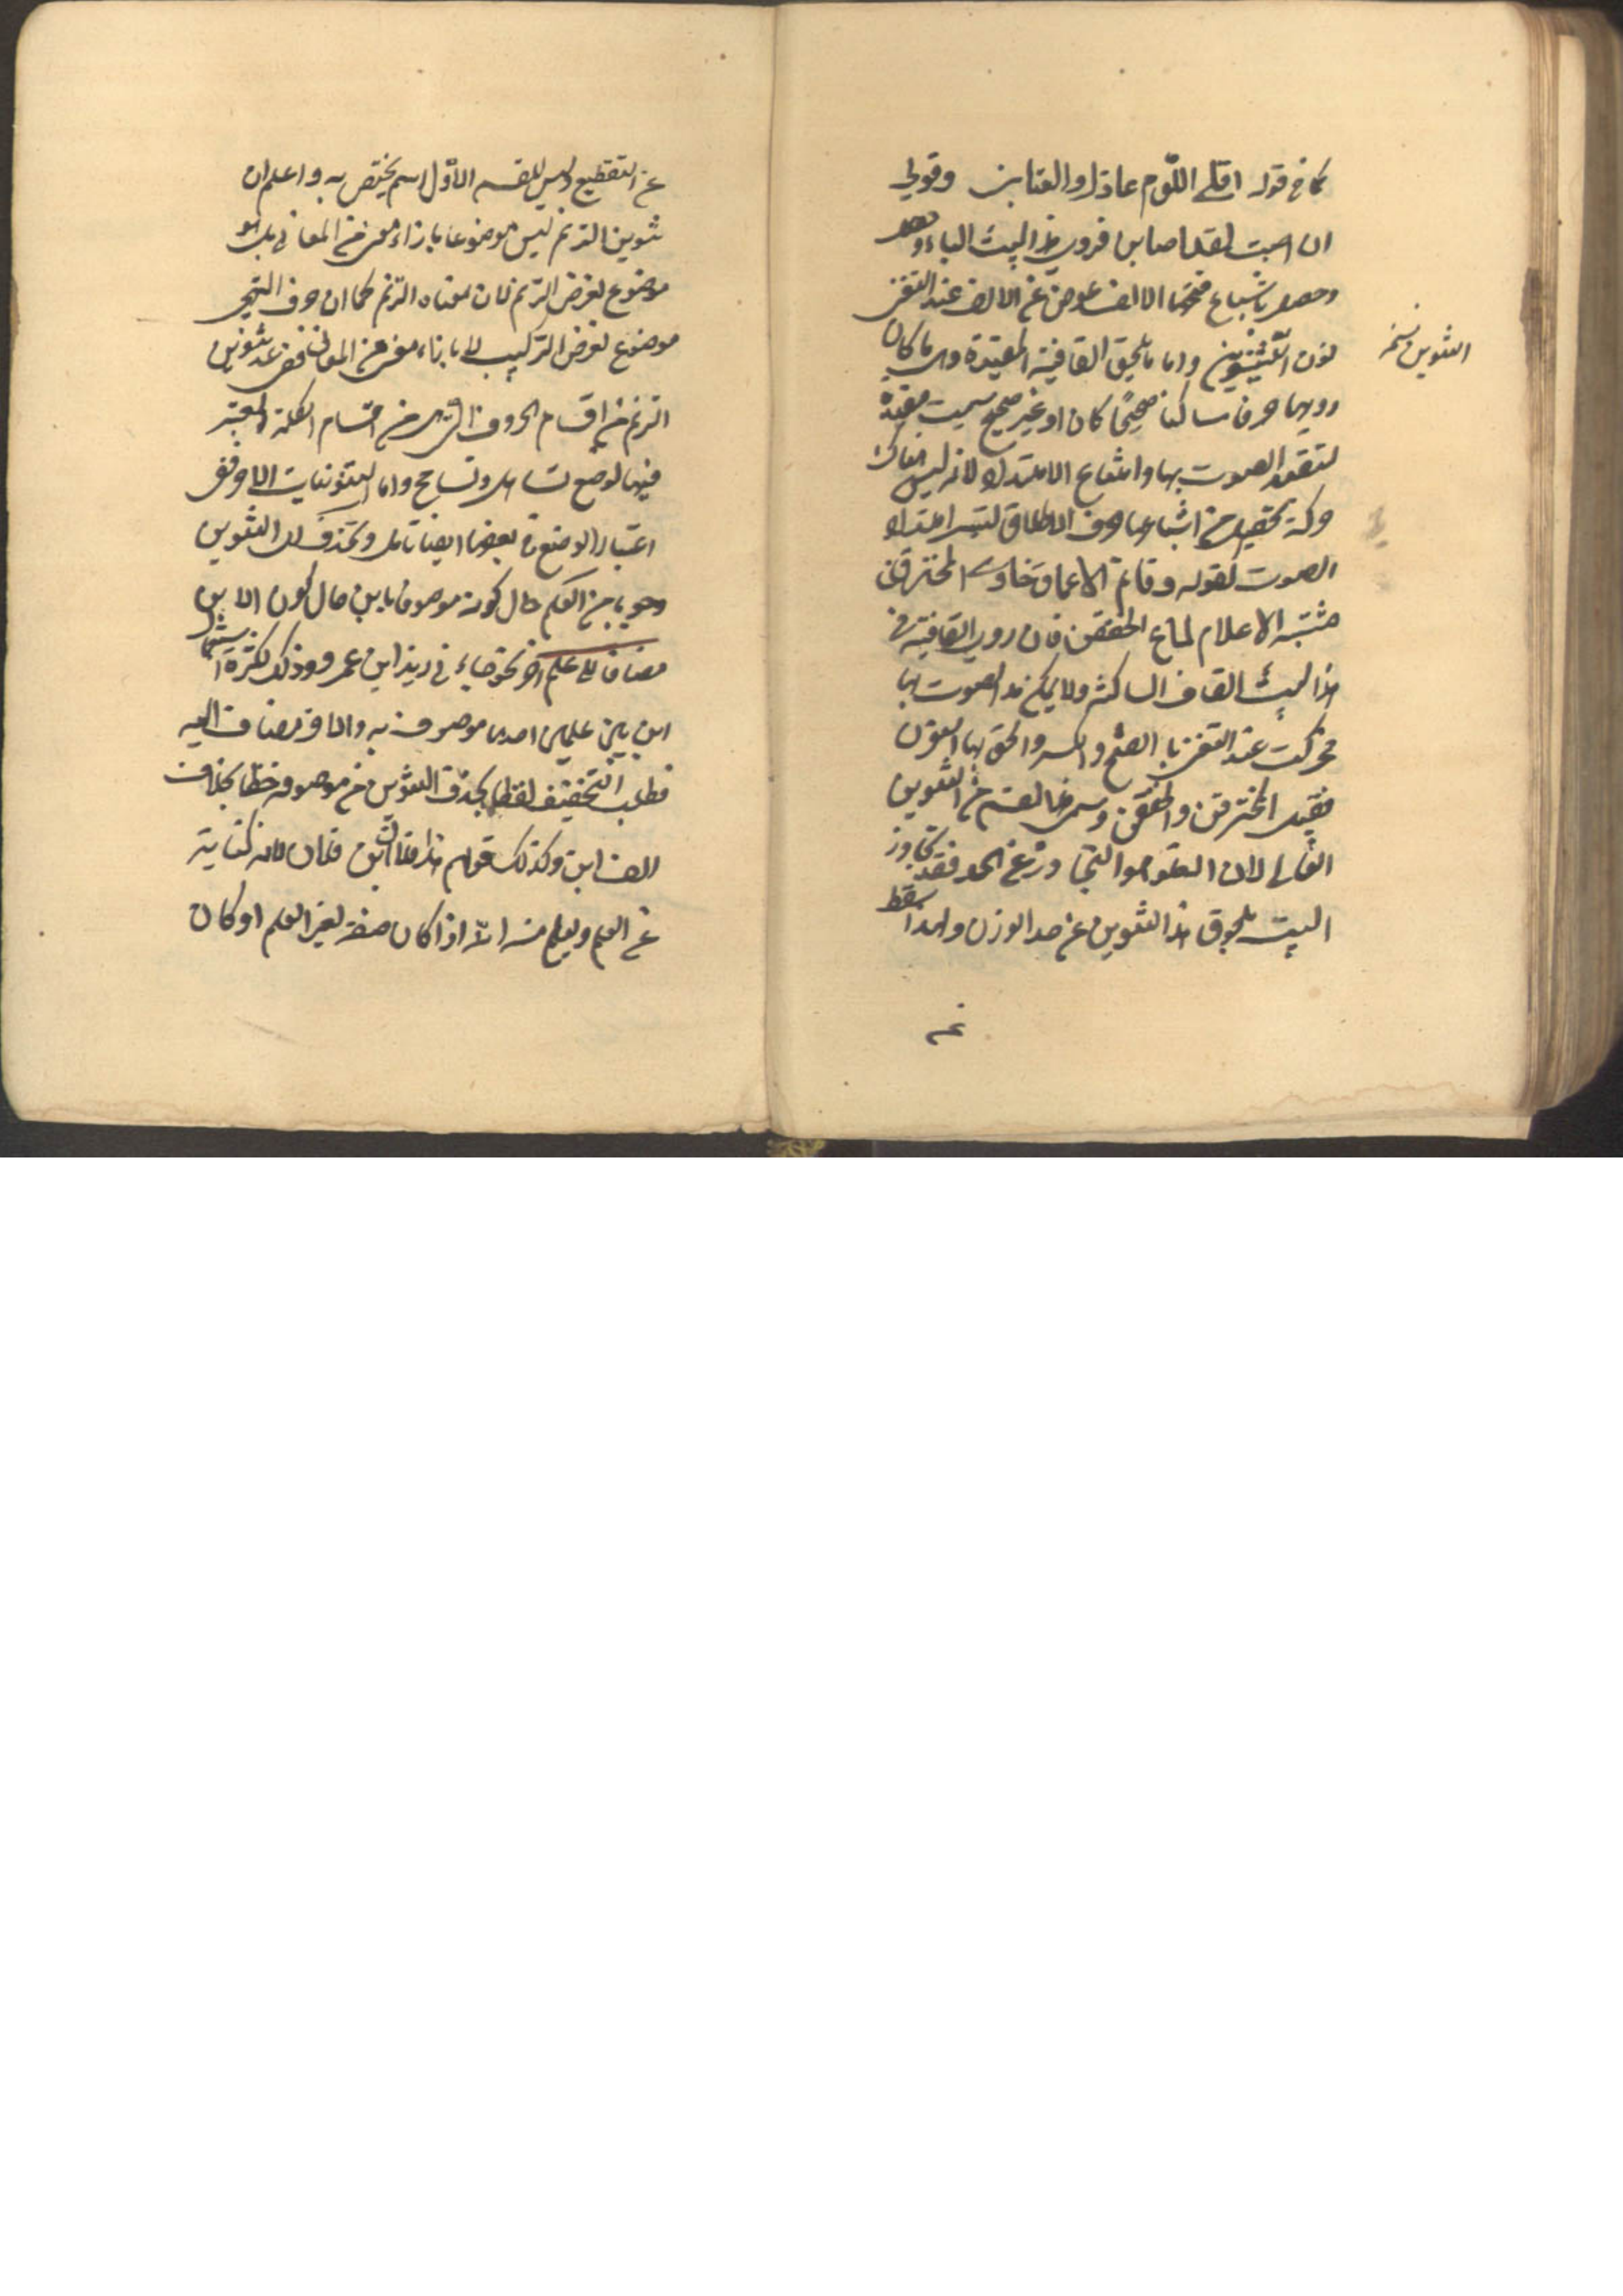 كما في قوله اقلي اللوم عاذل والعتابن وقولي
ان اصبت لقد اصابن فروي هذا البيت الباء وقد
وحصل باشباع فتحها الالف عوض عن الالف عند التغني
نون التنوين واما ما يلحق القافية المقيدة وهي ما كان
رويها حرفا ساكنا صحيحا كان او غير صحيح سميت مقيدة
لتقيد الصوت بها وامتناع الامتداد لانه ليس هناك
حركة يحصل من اشباعها حرف الاطلاق ليتيسر امتداد
الصوت كقوله وقاتم الاعماق خاوي المخترقن
مشتبه الاعلام لماع الخفقن فان روي القافية في
هذا البيت القاف الساكنة ولا يمكن مد الصوت بها
فحركت عند التغني بالفتح والكسر والحق بها النون
فقيل المخترقن والخفقن وسمي هذا القسم من التنوين
الغالي لان الغلو هو التجاوز عن الحد فقد تجاوز
البيت بلحوق هذا التنوين عن حد الوزن ولهذا يسقط
التنوين نسخه
عن
عن التقطيع وليس للقسم الاول اسم يختص به واعلم ان
تنوين الترنم ليس موضوعا بازاء معنى من المعاني بل هو
موضوع لغرض الترنم لان معناه الترنم كما ان حروف التهجي
موضوع لغرض التركيب لا بازاء معنى من المعاني ففي عد تنوين
الترنم من اقسام الحروف التي هي من اقسام الكلمة المعتبر
فيها الوضع تساهل وتسامح واما التنوينات الاخر ففي
اعتبار الوضع في بعضها ايضا تامل ويحذف اي التنوين
وجوبا من العلم حال كونه موصوفا بابن حال كون الابن
مضافا الى علم اخر نحو جاءني زيد ابن عمرو وذلك لكثرة استعمال
ابن بين علمين احدهما موصوف به والاخر مضاف اليه
فطلب التخفيف لفظا بحذف التنوين من موصوفه وخطا بحذف
الف ابن وكذلك قولهم هذا فلان ابن فلان لانه كناية
عن العلم ويعلم منه انه اذا كان صفة لغير العلم او كان